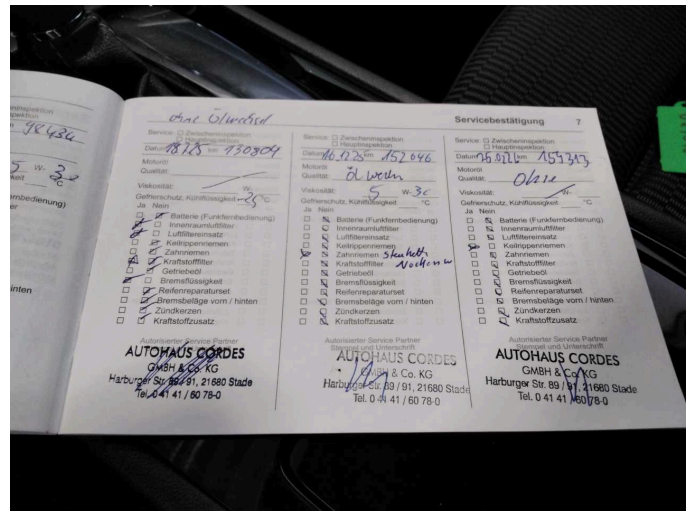 98434
5 W-
°C
ohne Ölwechsel
Service: □ Zwischeninspektion
□ Hauptinspektion
Datum km 130804
Motoröl
Qualität:
Viskosität: W-
Gefrierschutz, Kühlflüssigkeit -25 °C
Ja Nein
Batterie (Funkfernbedienung)
Innenraumluftfilter
Luftfiltereinsatz
Keilrippenriemen
Zahnriemen
Kraftstofffilter
Getriebeöl
Bremsflüssigkeit
Reifenreparaturset
Bremsbeläge vorn / hinten
Zündkerzen
Kraftstoffzusatz
Autorisierter Service Partner
Stempel und Unterschrift
AUTOHAUS CORDES
GMBH & Co. KG
Harburger Str. 89 / 91, 21680 Stade
Tel. 0 41 41 / 60 78-0
Service: □ Zwischeninspektion
□ Hauptinspektion
Datum km 152046
Motoröl
Qualität:
Viskosität: 5 W-30
Gefrierschutz, Kühlflüssigkeit °C
Ja Nein
Batterie (Funkfernbedienung)
Innenraumluftfilter
Luftfiltereinsatz
Keilrippenriemen
Zahnriemen
Kraftstofffilter
Getriebeöl
Bremsflüssigkeit
Reifenreparaturset
Bremsbeläge vorn / hinten
Zündkerzen
Kraftstoffzusatz
Autorisierter Service Partner
Stempel und Unterschrift
AUTOHAUS CORDES
GMBH & Co. KG
Harburger Str. 89 / 91, 21680 Stade
Tel. 0 41 41 / 60 78-0
Servicebestätigung 7
Service: □ Zwischeninspektion
□ Hauptinspektion
Datum km
Motoröl
Qualität: Ohne
Viskosität: W-
Gefrierschutz, Kühlflüssigkeit °C
Ja Nein
Batterie (Funkfernbedienung)
Innenraumluftfilter
Luftfiltereinsatz
Keilrippenriemen
Zahnriemen
Kraftstofffilter
Getriebeöl
Bremsflüssigkeit
Reifenreparaturset
Bremsbeläge vorn / hinten
Zündkerzen
Kraftstoffzusatz
Autorisierter Service Partner
Stempel und Unterschrift
AUTOHAUS CORDES
GMBH & Co. KG
Harburger Str. 89 / 91, 21680 Stade
Tel. 0 41 41 / 60 78-0